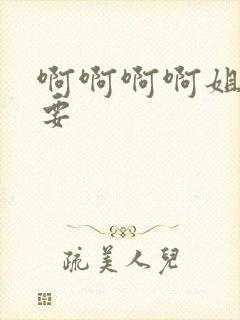 啊啊啊啊姐
要
疏美人儿